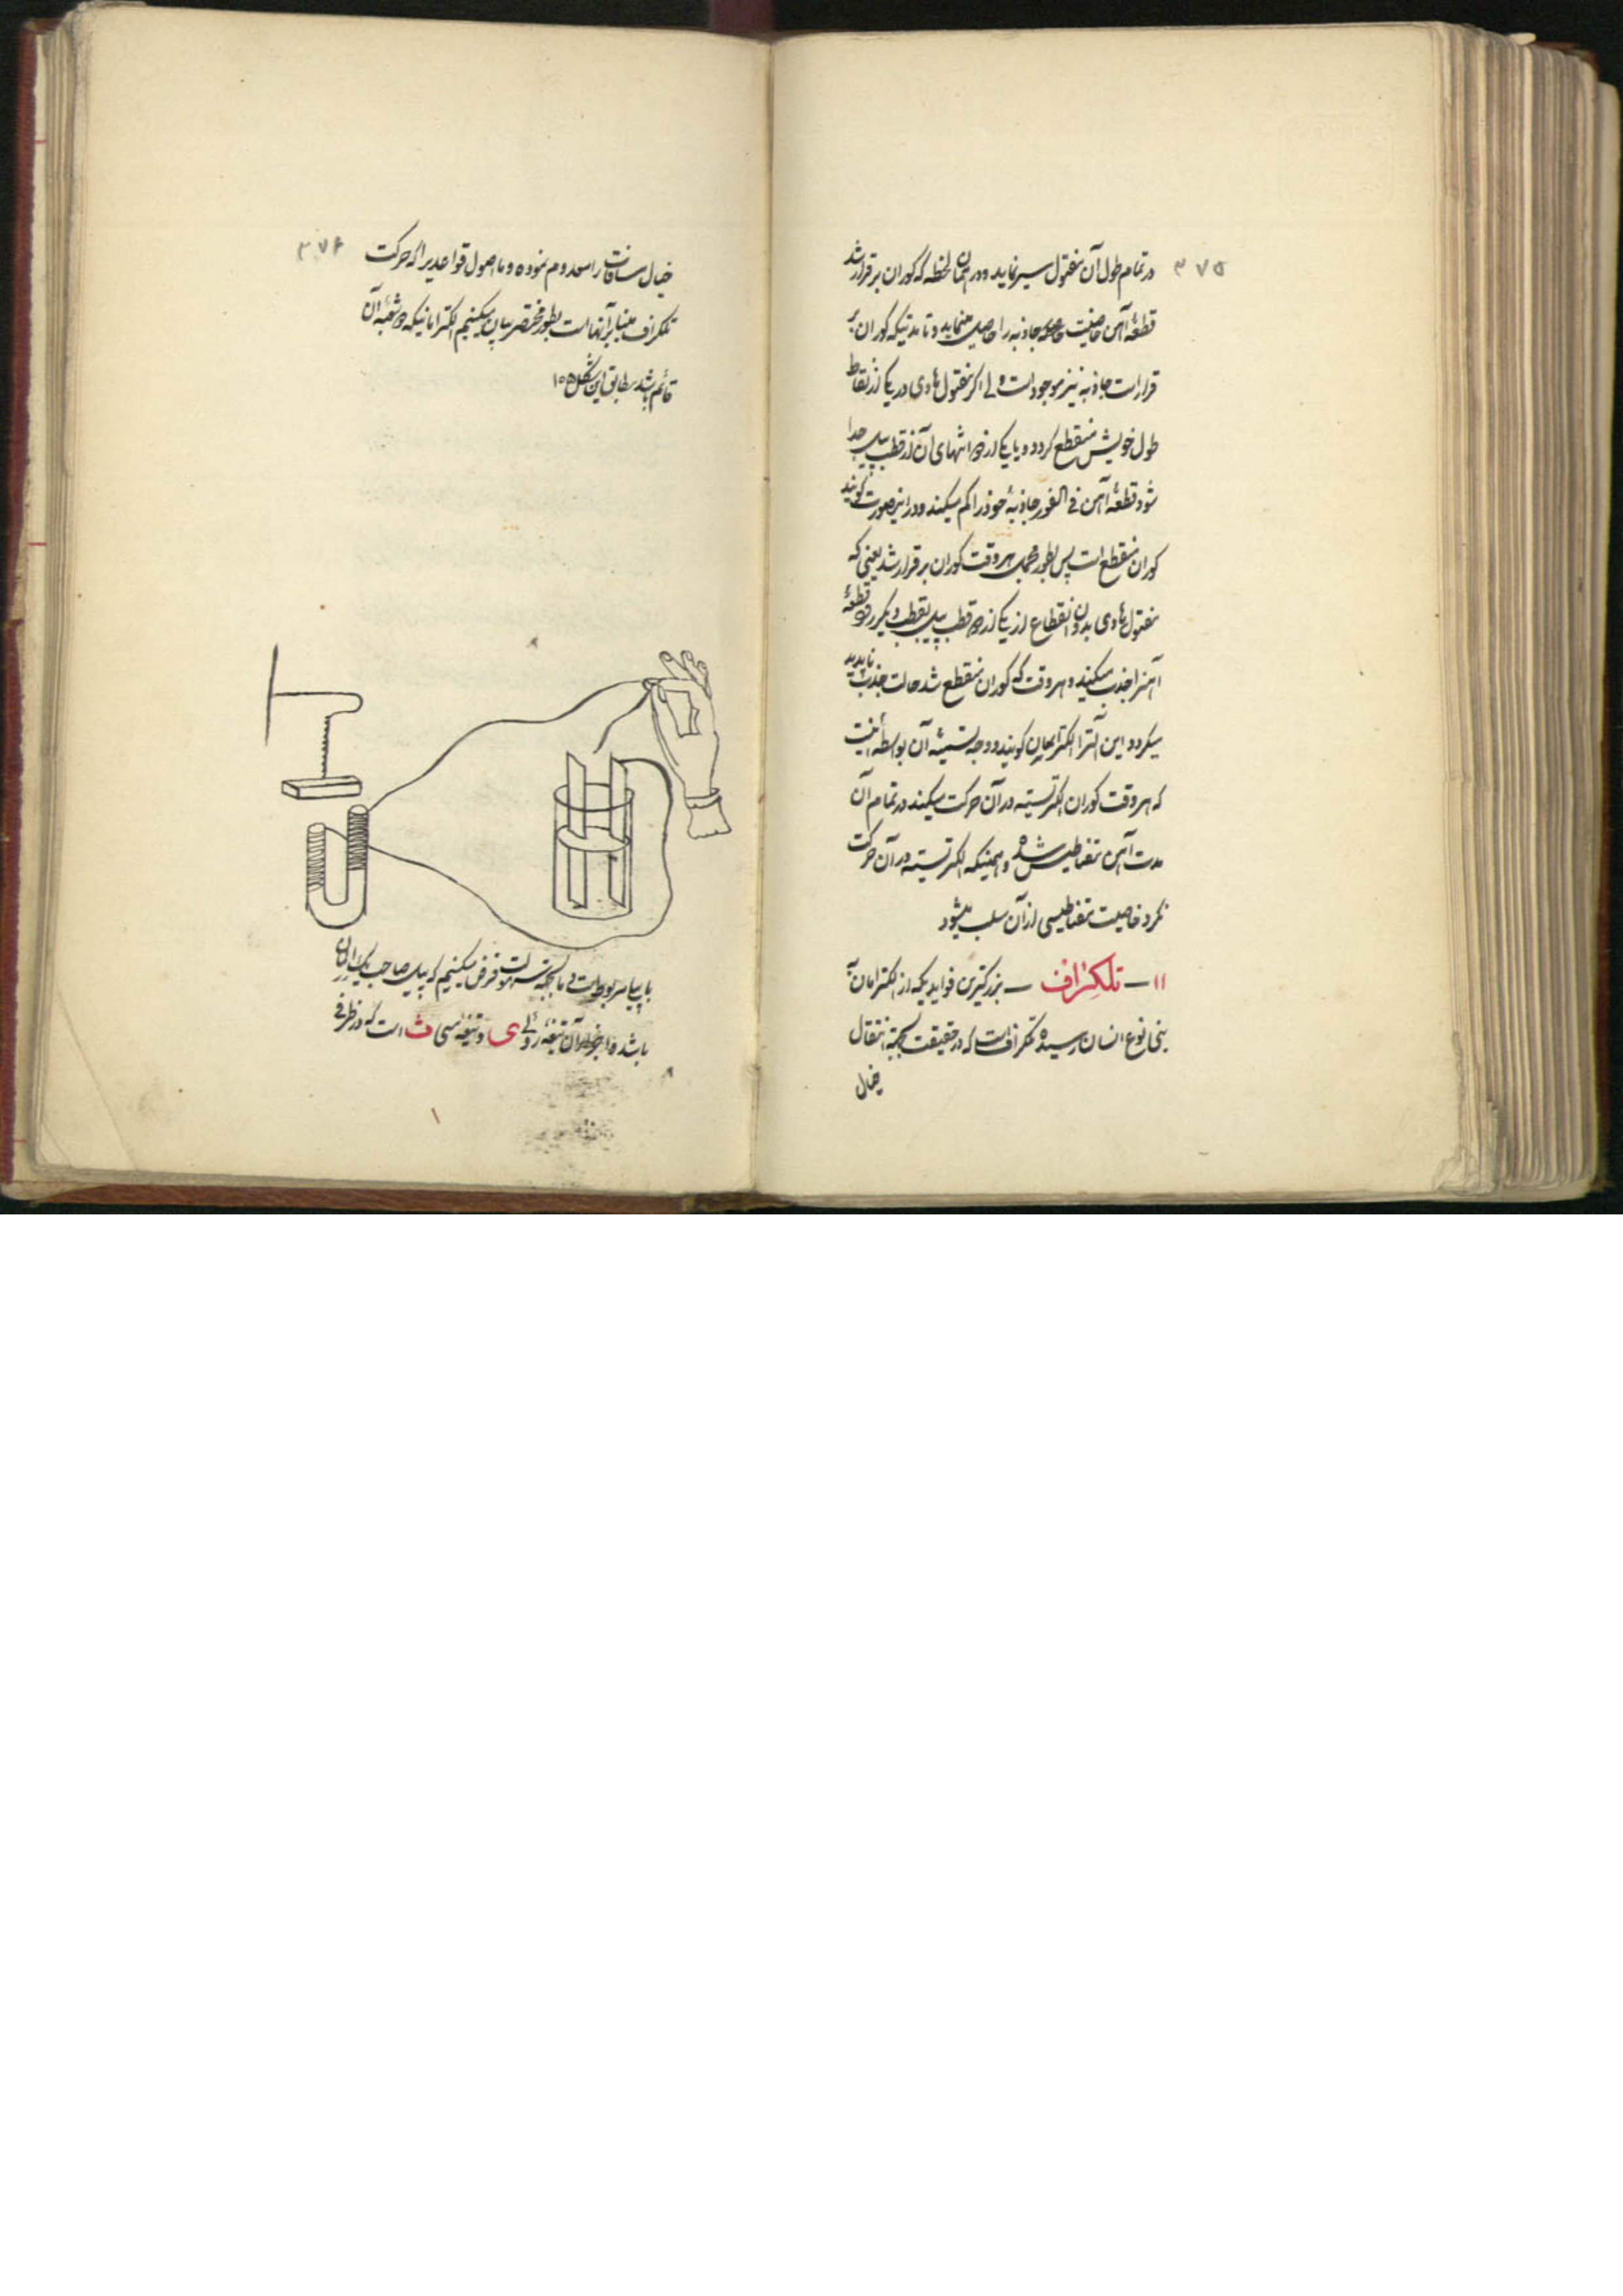 ۳۷۵
در تمام طول آن مفتول سیر نماید و در همان لحظه که کوران برقرار شد
قطعه آهن خاصیت جاذبه را حاصل مینماید و تا مدتیکه کوران بر
قرار است جاذبه نیز موجود است ولی اگر مفتول هادی در یکی از نقاط
طول خویش منقطع کردد و یا یکی از دو انتهای آن از قطب پیل جدا
شود قطعه آهن فی الفور جاذبه خود را کم میکند و در اینصورت کویند
کوران منقطع است پس بطور مجمل هر وقت کوران برقرار شد یعنی که
مفتول هادی بدون انقطاع از یکی از دو قطب پیل بقطب دیکر رود قطعه
آهنرا جذب میکند و هر وقت که کوران منقطع شد حالت جذب ناپدید
میکردد و این آلترا الکترایمان کویند و وجه تسمیه آن بواسطه اینست
که هر وقت کوران الکتریسیته در آن حرکت میکند در تمام آن
مدت آهن مغناطیس شده و همینکه الکتریسیته در آن حرکت
نکرد خاصیت مغناطیسی از آن سلب میشود
۱۱ — تلکراف — بزرکترین فوایدیکه از الکترامان به
بنی نوع انسان رسیده تلکراف است که در حقیقت بجهة انتقال
خیال
۳۷۶
خیال مسافات را معدوم نموده و ما اصول قواعدیرا که حرکت
تلکراف مبنی بر آنها است بطور مختصر بیان میکنیم الکترامانیکه دو شعبه آن
قائم باشد مطابق این شکل ۱۵۵
با پیل مربوط است و ما بجهة سهولت فرض میکنیم که پیل صاحب یک
باشد و اجزاء آن تیغه روئی ی و تیغه مسی ث است که در ظرفی